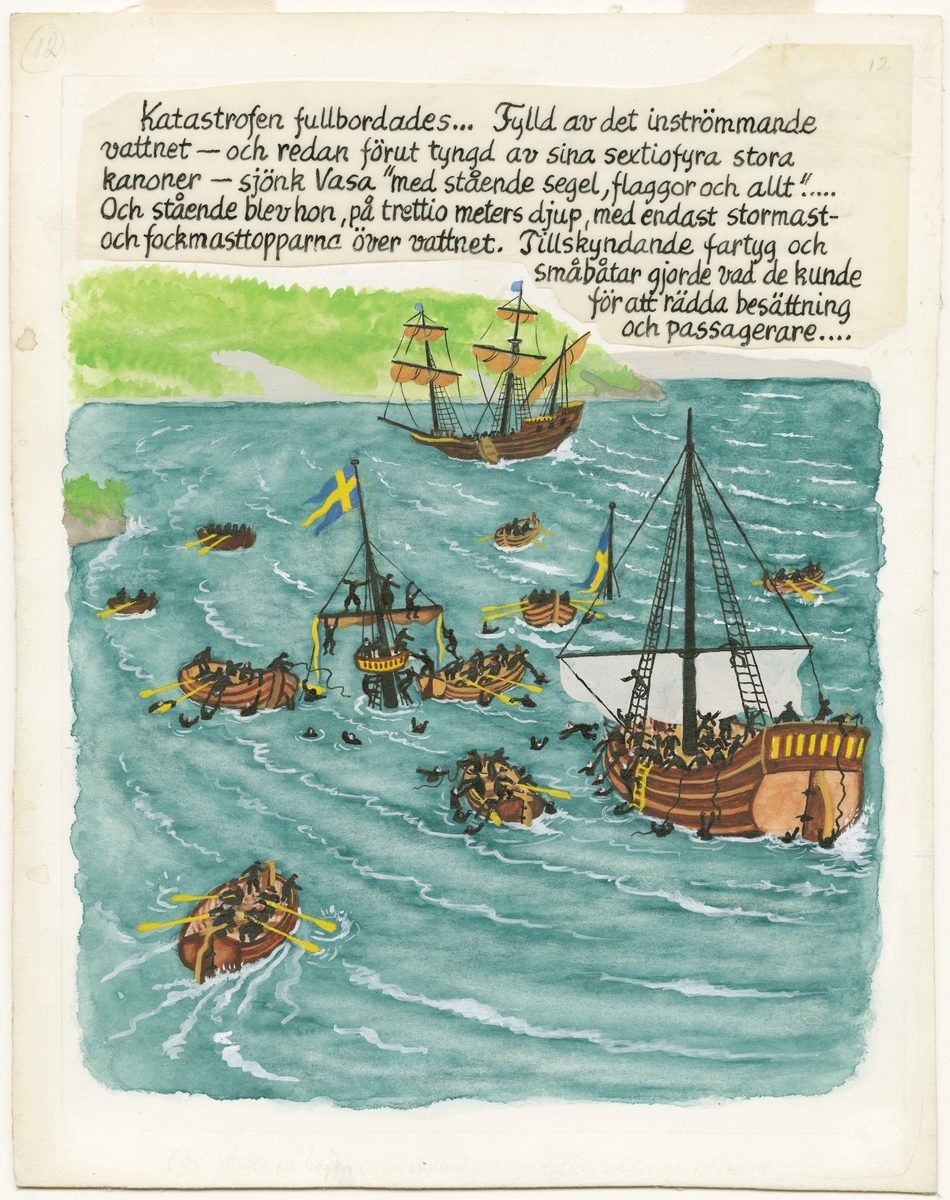 12
12
Katastrofen fullbordades... Fylld av det inströmmande
vattnet — och redan förut tyngd av sina sextiofyra stora
kanoner — sjönk Vasa "med stående segel, flaggor och allt"....
Och stående blev hon, på trettio meters djup, med endast stormast-
och fockmasttopparna över vattnet. Tillskyndande fartyg och
småbåtar gjorde vad de kunde
för att rädda besättning
och passagerare....